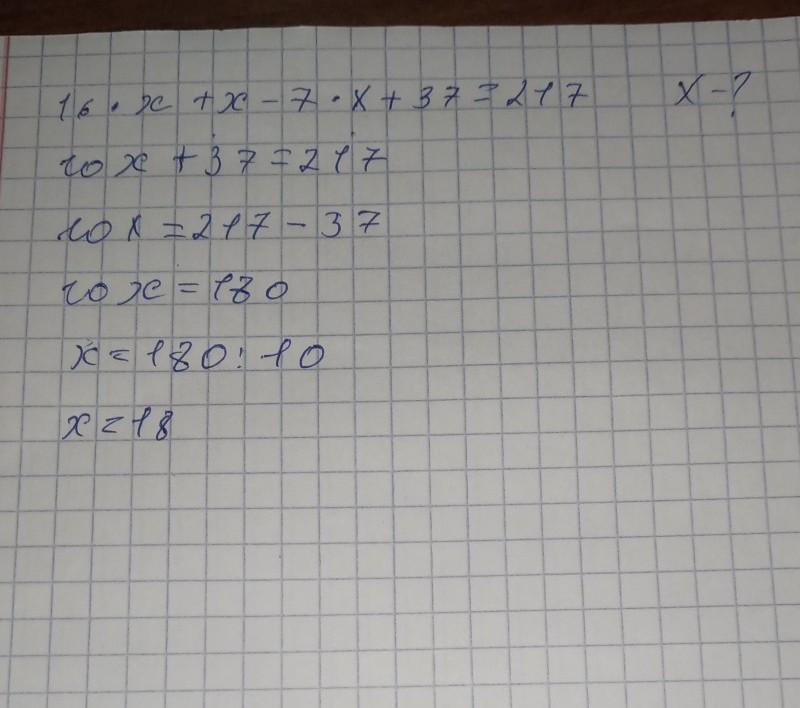 16 · x + x - 7 · x + 37 = 217 x - ?
10x + 37 = 217
10x = 217 - 37
10x = 180
x = 180 : 10
x = 18